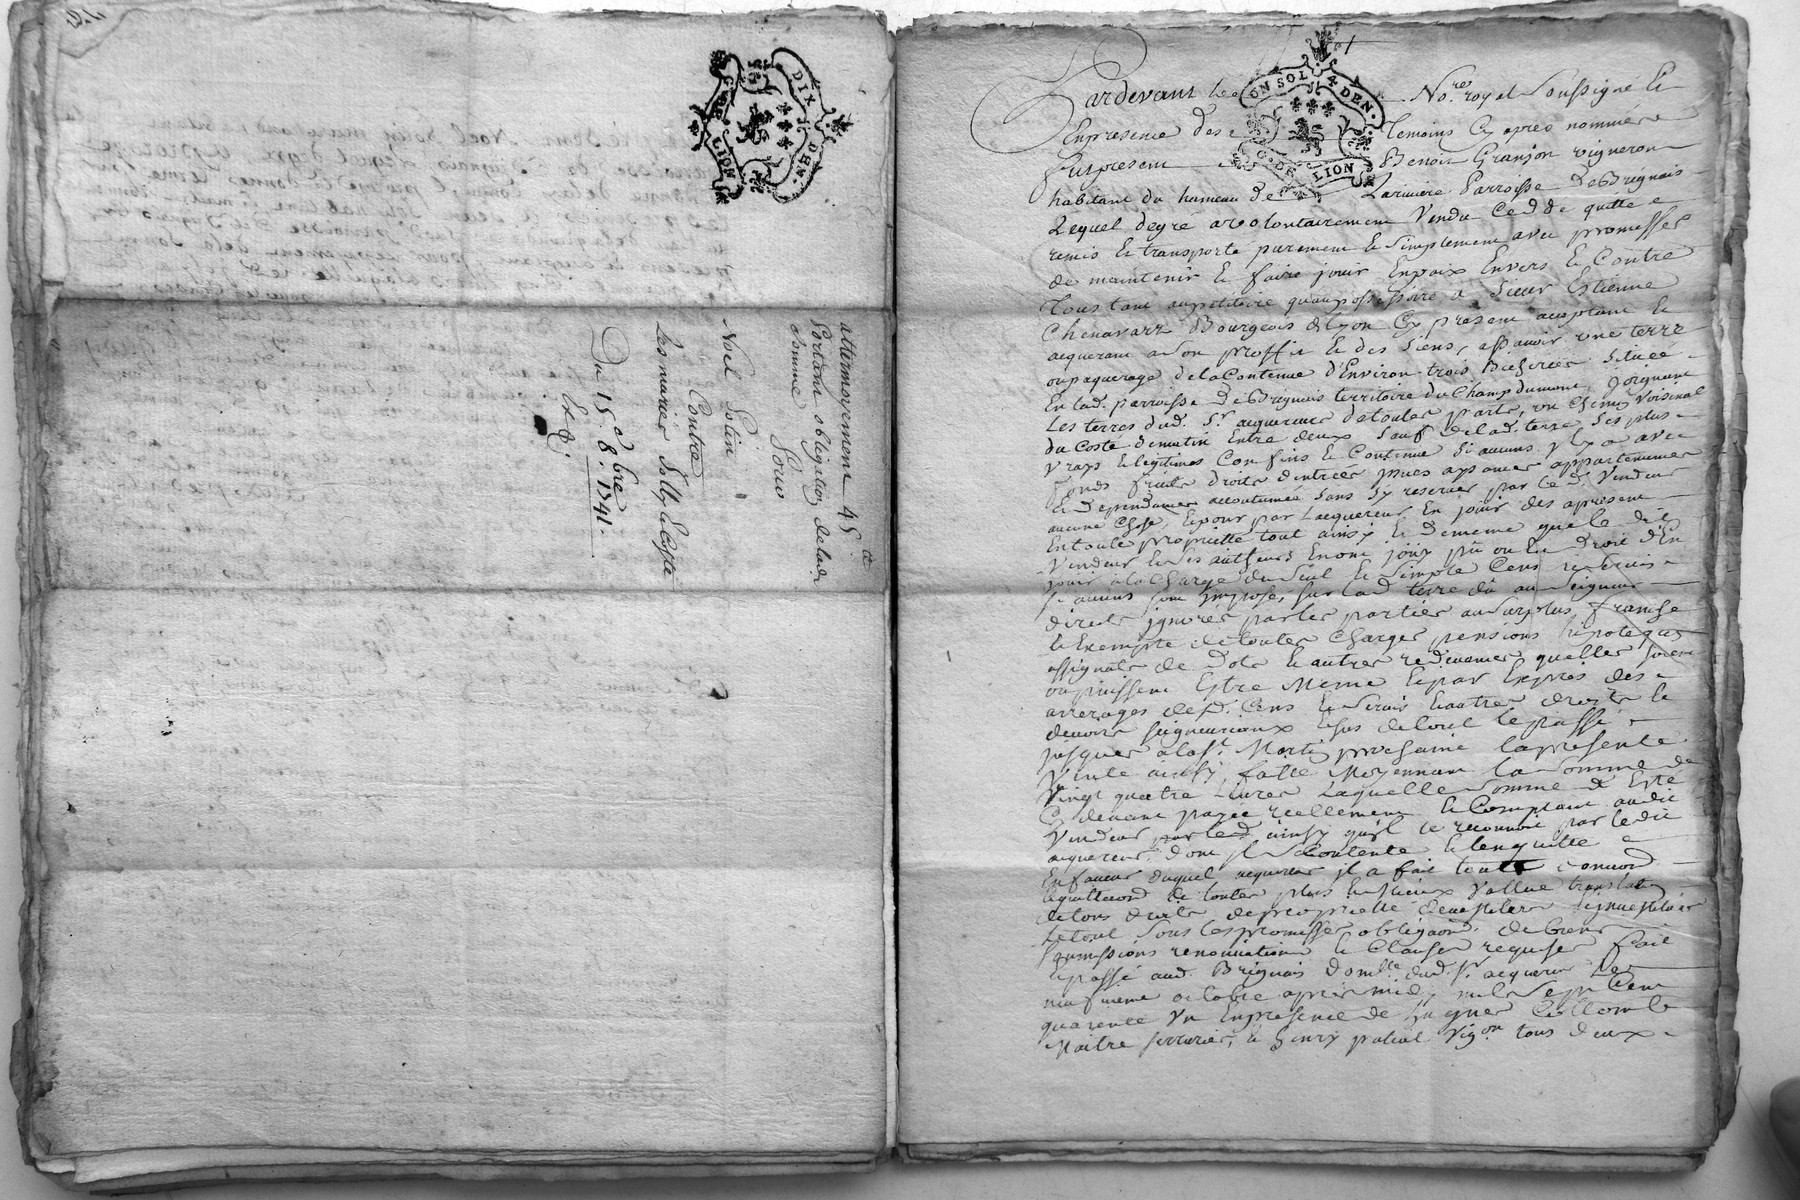 DIX DEN.
G. DE LION
attermoyement 45 tt
Portant obligation de lad.
somme
Pour
Noel Potin
Contre
Les mariés Solly & Coste
Du 15e 8bre 1741.
Exp.
UN SOL 4 DEN.
G. DE LION
Pardevant le No.re royal soussigné &
En presence des temoins Cy apres nommés
fut present Benoit Granjon vigneron
habitant du hameau de Lariviere Parroisse de Brignais
Lequel degré a volontairement Vendu Cedde quitte
remis & transporte purement & simplement avec promesses
de maintenir & faire jouir En paix Envers & Contre
Tous tant au petitoire qu'au possessoire a sieur Estienne
Chenavarz Bourgeois de Lyon Cy present acceptant &
acquerant a son proffit & des siens, assavoir une terre
ou paquerage de la Contenue d'Environ trois Bicherées Située
En lad. parroisse de Brignais territoire du Champ dumont, Joignant
les terres dud. Sr. acquereur de toutes parts, un chemin voisinal
du Costé de matin Entre deux sauf de lad. terre ses plus
vrays & legitimes Confins & Continue Si aucuns y En a avec
fonds fruits droits d'entrées yssues aysances appartenances
& dependances accoutumées Sans sy reserver par led. Vendeur
aucune Chose, & pour par l'acquereur En jouir des apresent
En toute proprietté tout ainsy & de meme que le dit
Vendeur & ses autheurs En ont jouy pû ou Eu droit d'En
jouir a la Charge du seul & Simple Cens & servis
si aucuns sont imposés, sur lad terre dû au Seigneur
direct ignorés par les parties au surplus, franche
& Exempte de toutes Charges pensions hipoteques
assignats de Dots & autres redevances quelles soient
ou puissent Estre Meme & par Exprés des
arrerages desd. Cens & Servis & autres droits &
devoirs seigneuriaux Echus de tout le passé
jusques a la St. Martin prochaine la presente
Vente ainsy faitte Moyennant la Somme de
Vingt quatre Livres Laquelle Somme a Esté
Cy devant payée reellement & Comptant audit
Vendeur par led ainsy qu'il le reconnoit par le dit
acquereur, dont il se Contente & l'en quitte
En faveur duquel acquereur il a fait toute
& quittaons de toutes plus & mieux Vallue translats
de tous droits de proprietté devestiture & investiture
Le tout Sous les promesses obligaons. de biens
soumissions renonciations & Clauses requises fait
& passé aud. Brignais Domlle. dud. Sr acquereur Le
neufvieme octobre apres midy mil Sept Cent
quarente un En presence de hugues Collomb
Maitre serrurier, & henry patial Vig.on tous deux